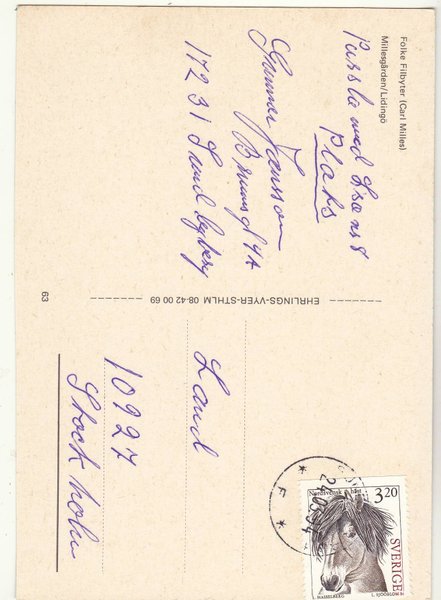 Folke Filbyter (Carl Milles)
Millesgården/Lidingö
Pussla med
plats
Gunnar Jonsson
Brunnsg 4A
172 31 Sundbyberg
63
EHRLINGS-VYER-STHLM 08-42 00 69
Land
10927
Stockholm
Nordsvensk häst
3.20
SVERIGE
HASSELBERG
L. SJÖÖBLOM
* F *